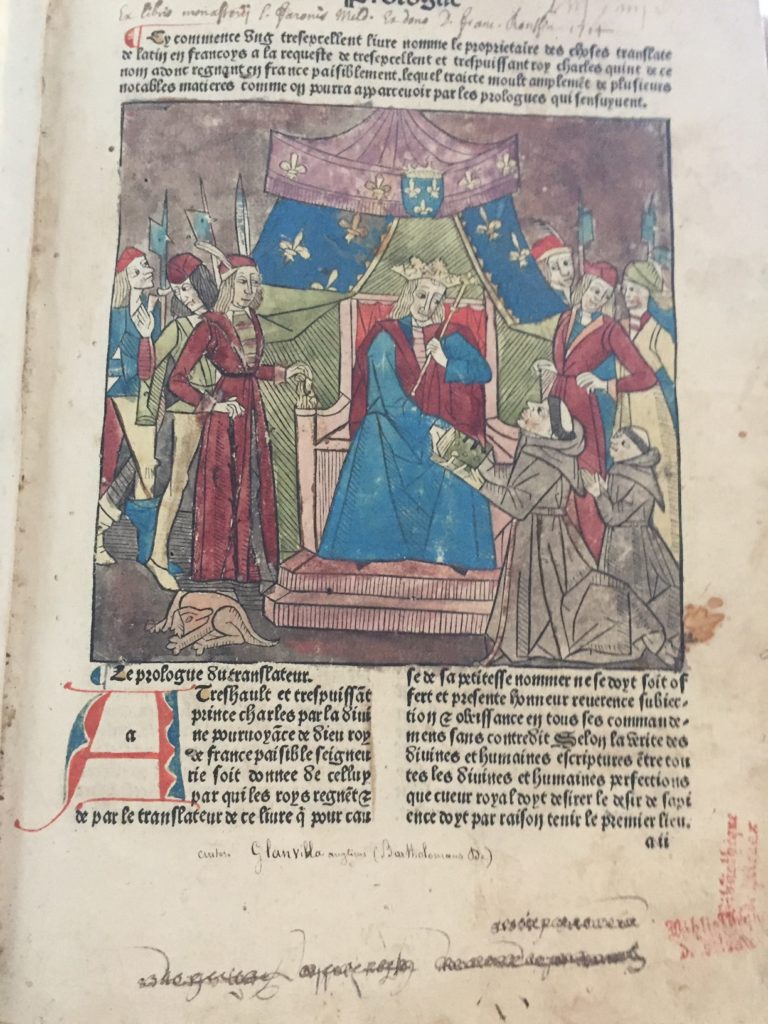 Prologue
Ex libris monasterij S. Faronis Meld. Ex dono D. Franc.
Cy commence ung tresexcellent livre nomme le proprietaire des choses translate
de latin en francoys a la requeste de tresexcellent et trespuissant roy charles quint de ce
nom adont regnant en france paisiblement. lequel traicte moult amplemẽt de plusieurs
notables matieres comme on pourra apparcevoir par les prologues qui sensuyvent.
Le prologue du translateur.
A Treshault et trespuissãt
a
prince charles par la divi
ne pourvoyãce de dieu roy
de france paisible seigneu
rie soit donnee de celluy
par qui les roys regnẽt &
de par le translateur de ce livre q̃ pour cau
se de sa petitesse nommer ne se doyt soit of
fert et presente honneur reverence subiec-
tion & obeissance en tous ses commande-
mens sans contredit Selon la verite des
divines et humaines escriptures ẽtre tou
tes les divines et humaines perfections
que cueur royal doyt desirer le desir de sapi
ence doyt par raison tenir le premier lieu.
a ii
autor. Glanvilla anglicus (Bartholomaeus de)